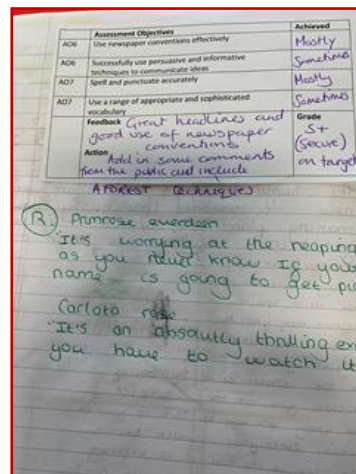 Assessment Objectives Achieved
AO6 Use newspaper conventions effectively Mostly
AO6 Successfully use persuasive and informative techniques to communicate ideas Sometimes
AO7 Spell and punctuate accurately Mostly
AO7 Use a range of appropriate and sophisticated vocabulary Sometimes
Feedback Great headlines and Grade
good use of newspaper 5+
conventions (secure)
Action Add in some comments on target
from the public and include
AFOREST techniques
R. Primrose everdeen
"It's worrying at the reaping
as you never know if your
name is going to get
Carlota rose
"It's an absautly thrilling
you have to watch it